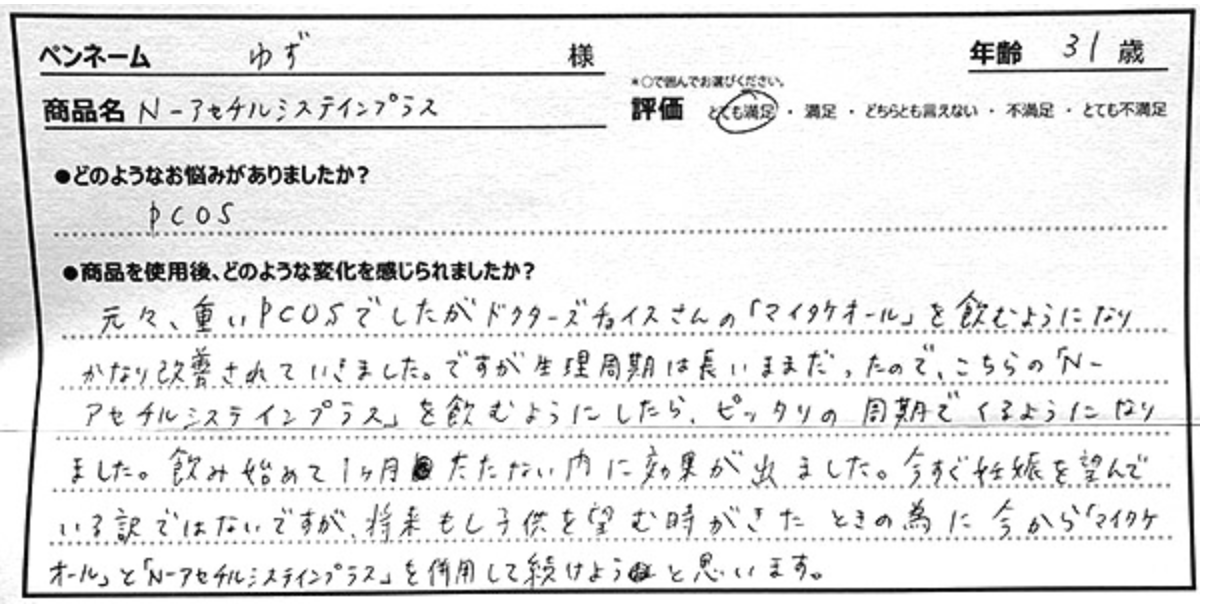 ペンネーム ゆず 様 年齢 31 歳
*○で囲んでお選びください。
商品名 N-アセチルシステインプラス 評価 とても満足・満足・どちらとも言えない・不満足・とても不満足
●どのようなお悩みがありましたか?
PCOS
●商品を使用後、どのような変化を感じられましたか?
元々、重いPCOSでしたがドクターズチョイスさんの「マイタケオール」を飲むようになり
かなり改善されていきました。ですが生理周期は長いままだったので、こちらの「N-
アセチルシステインプラス」を飲むようにしたら、ピッタリの周期でくるようになり
ました。飲み始めて1ヶ月たたない内に効果が出ました。今すぐ妊娠を望んで
いる訳ではないですが、将来もし子供を望む時がきたときの為に今から「マイタケ
オール」と「N-アセチルシステインプラス」を併用して続けようと思います。